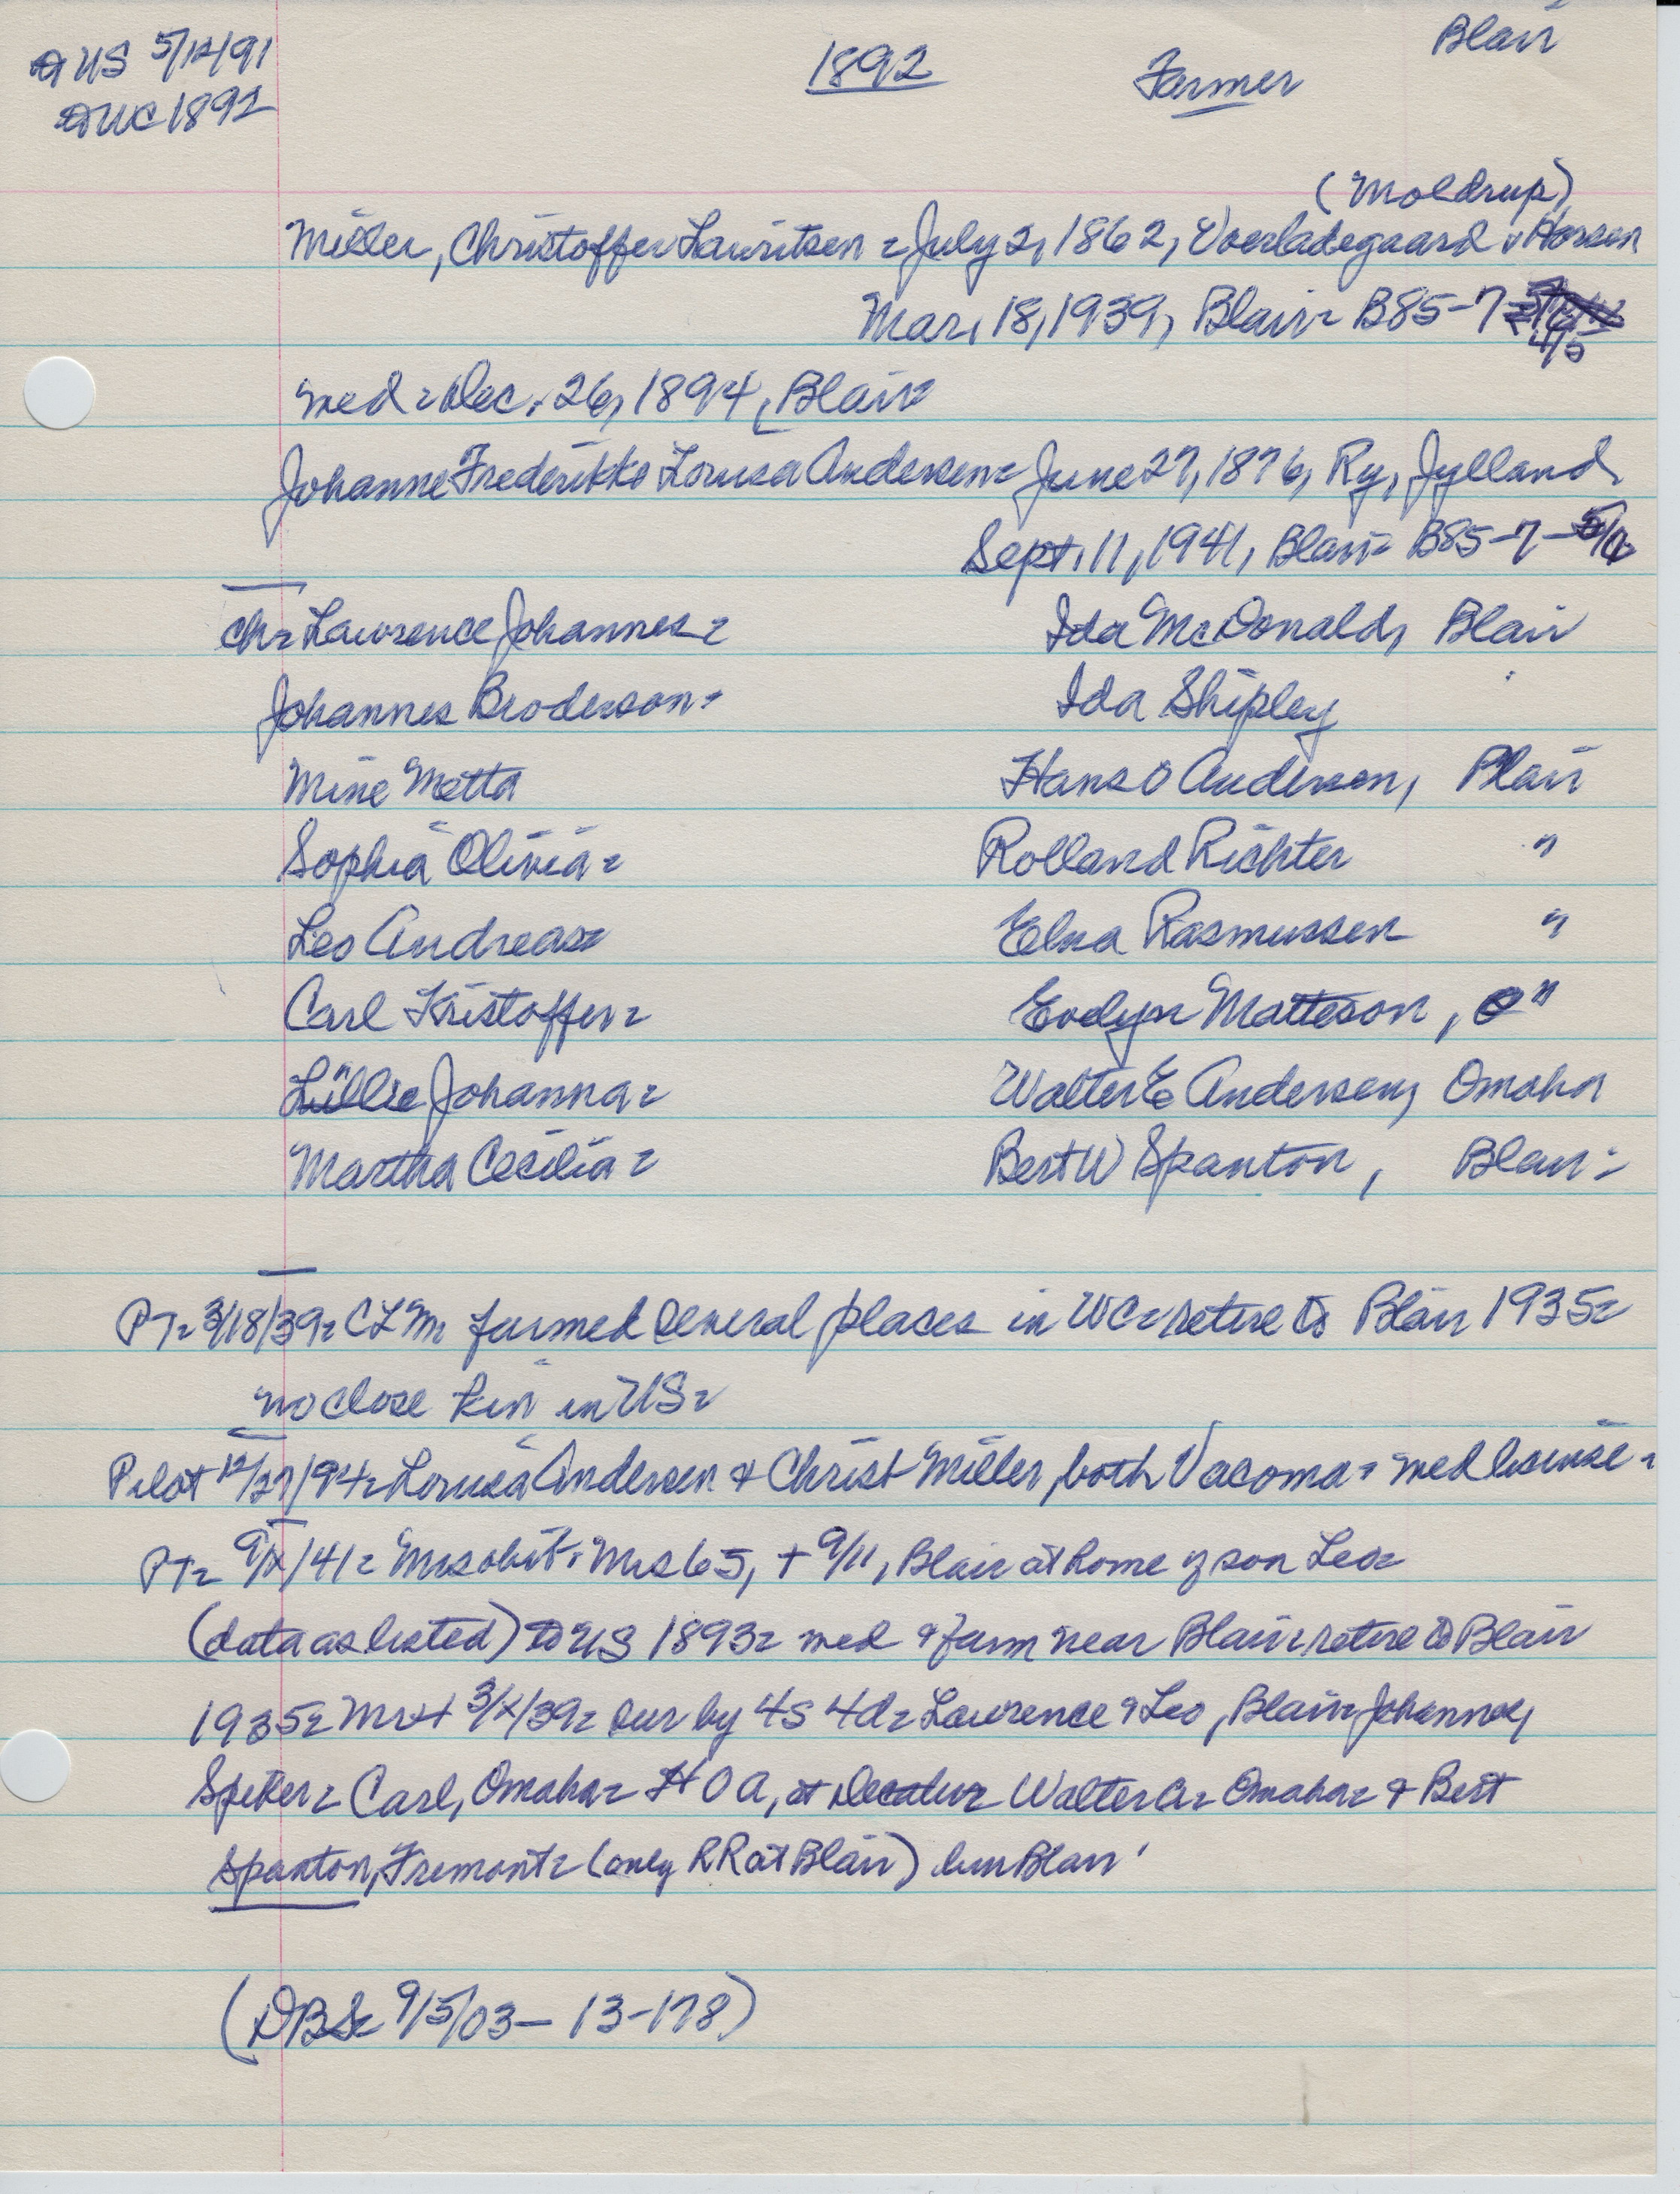 Blair
US 5/12/91
1892
Farmer
WC 1892
(Moldrup)
Miller, Christoffer Lauritsen = July 2, 1862, Voerladegaard v Horsen
Mar. 18, 1939, Blair = B85-7 4/5
med = Dec. 26, 1894, Blair
Johanne Frederikke Lousa Andersen = June 27, 1876, Ry, Jylland
Sept. 11, 1941, Blair = B85-7-
Ch = Lawrence Johannes = Ida McDonald, Blair
Johannes Broderson = Ida Shipley
Mine Metta Hans O Anderson, Blair
Sophia Olivia = Rolland Richter "
Leo Andreas = Elna Rasmussen "
Carl Kristoffer = Evelyn Matteson, "
Lillie Johanna = Walter E Andersen, Omaha
Martha Cecilia = Bert W Spanton, Blair =
PT = 3/18/39 = CLM farmed several places in WC = retire to Blair 1935 =
no close kin in US =
Pilot 12/27/94 = Lousa Andersen & Christ Miller, both Vacoma = med lisense =
PT = 9/X/41 = Mrs obit. Mrs 65, + 9/11, Blair at home of son Leo =
(data as listed) to US 1893 = med & farm near Blair = retire to Blair
1935 = Mr + 3/X/39 = sur by 4s 4d = Lawrence & Leo, Blair = Johannes,
Spiker = Carl, Omaha = H O A, at Decatur = Walter A = Omaha = & Bert
Spanton, Fremont = (only RR at Blair) bur Blair
(DBS = 9/5/03 - 13-178)